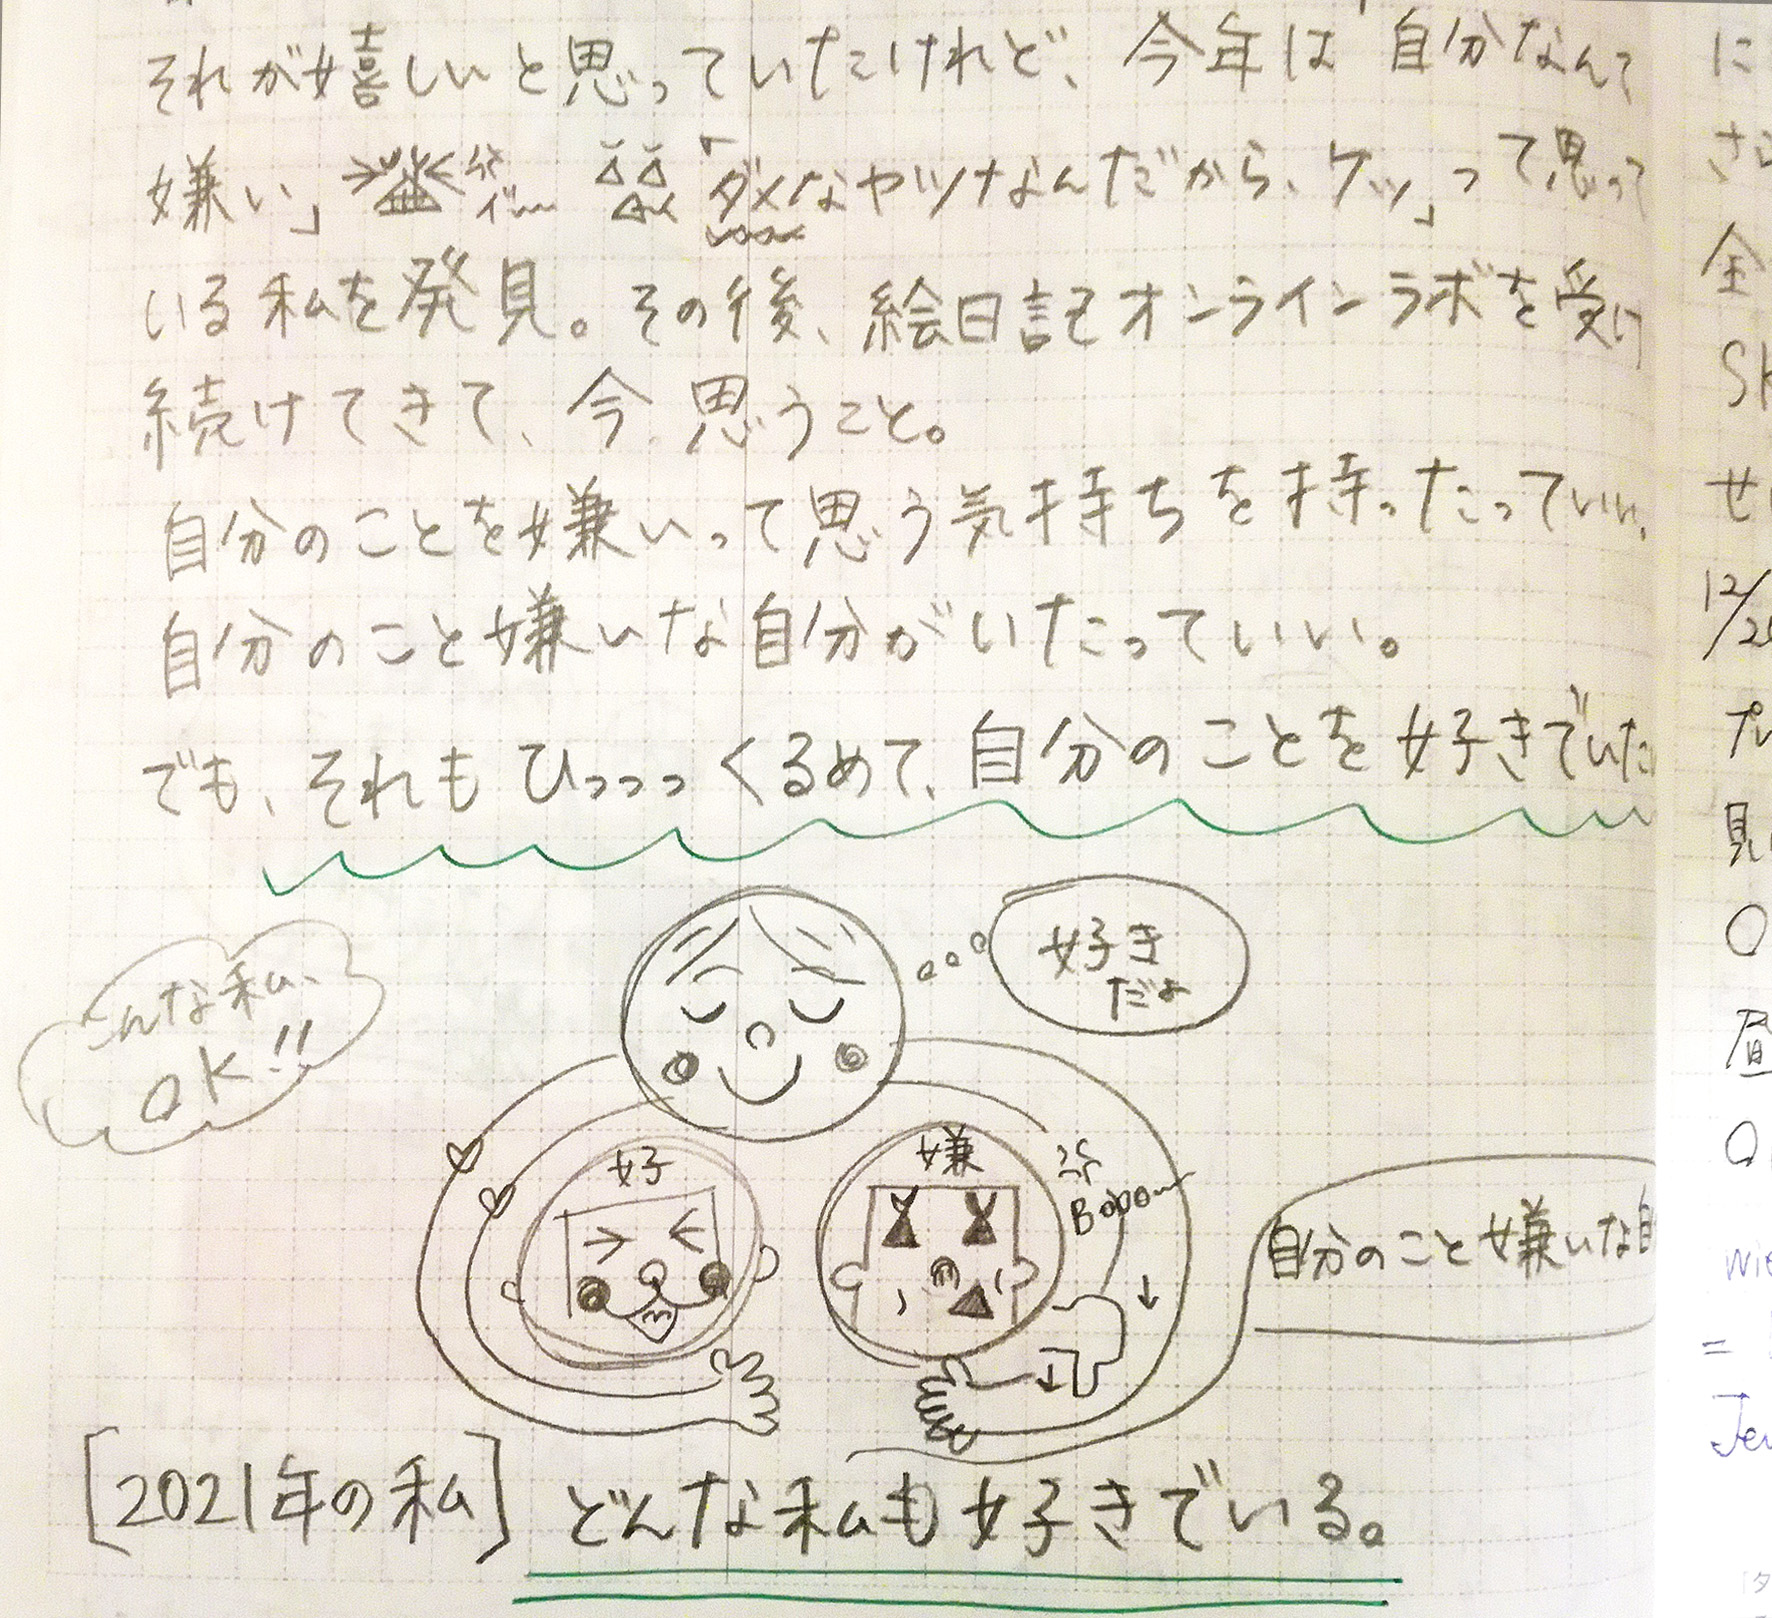 それが嬉しいと思っていたけれど、今年は「自分なんて
嫌い」
「ダメなヤツなんだから、ケッ」って思って
いる私を発見。その後、絵日記オンラインラボを受け
続けてきて、今、思うこと。
自分のことを嫌いって思う気持ちを持ったっていい、
自分のこと嫌いな自分がいたっていい。
でも、それもひっっっくるめて、自分のことを好きでいた
好き
だよ
こんな私、
OK!!
好
嫌
Booo
自分のこと嫌いな自
[2021年の私] どんな私も好きでいる。
に
さ
全
SK
せ
12/2
プレ
見
昼
wie
=
Jer